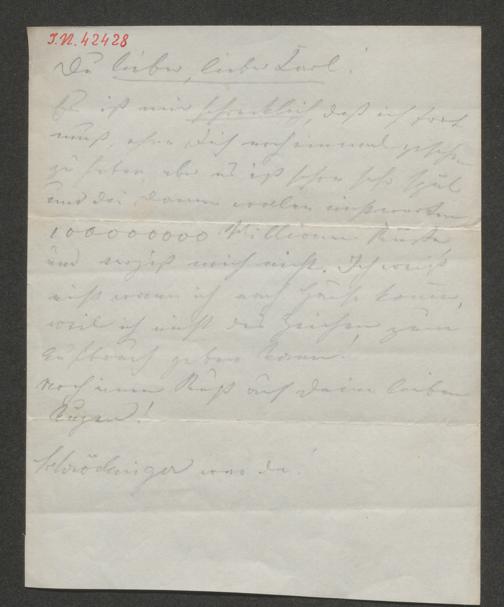 I.N. 42428
Du lieber, lieber Karl!
Es ist mir schrecklich, daß ich fort
muß, ohne Dich noch einmal gesehen
zu haben, aber es ist schon sehr spät
und die Damen wollen
100000000 Millionen Küsse,
und vergiß mich nicht. Ich weiß
nicht wann ich nach Hause komme,
weil ich nicht das Zeichen zum
Aufbruch geben kann!
Noch einen Kuß auf Deine lieben
Augen!
Schrödinger war da!